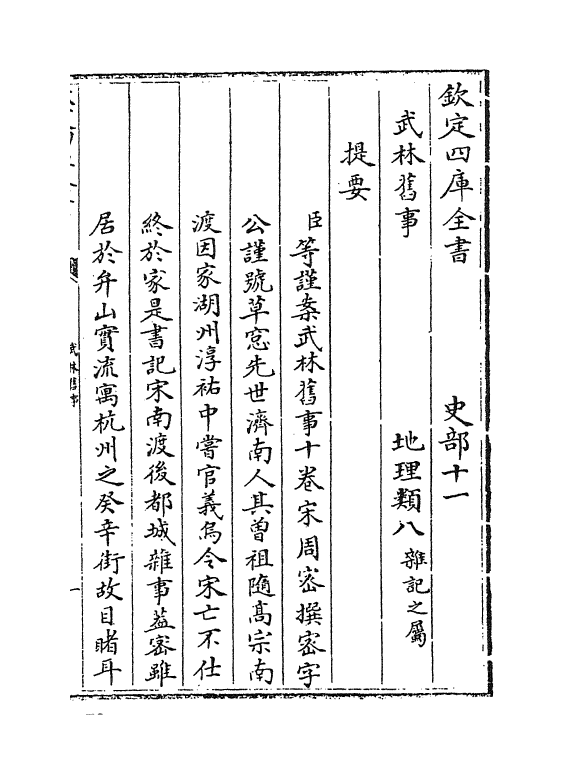 欽定四庫全書 史部十一
武林舊事 地理類八雜記之屬
提要
臣等謹案武林舊事十卷宋周密撰密字
公謹號草窓先世濟南人其曾祖隨髙宗南
渡因家湖州淳祐中嘗官義烏令宋亡不仕
終於家是書記宋南渡後都城雜事葢密雖
居於弁山實流寓杭州之癸辛街故目睹耳
武林舊事
一